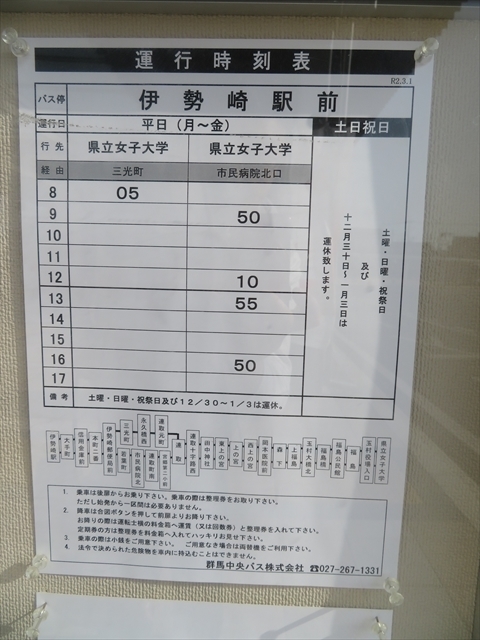 運行時刻表
R2.3.1
バス停 伊勢崎駅前
運行日 平日(月～金) 土日祝日
行先 県立女子大学 県立女子大学
経由 三光町 市民病院北口
8 05
9 50
10
11
12 10
13 55
14
15
16 50
17
土曜・日曜・祝祭日
及び
十二月三十日～一月三日は
運休致します。
備考 土曜・日曜・祝祭日及び12/30～1/3は運休。
伊勢崎駅
大手町
信用金庫前
本町二番
伊勢崎郵便局前
三光町
若葉町
永久橋西
市民病院北
連取元町
連取町南
連取
連取十字路西
田中神社
東上の宮
上の宮
西上の宮
岡本医院前
森下
上福島
玉村大橋北
福島橋
福島公民館
福島
玉村役場入口
県立女子大学
1. 乗車は後扉からお乗り下さい。乗車の際は整理券をお取り下さい。
ただし始発から一区間は必要ありません。
2. 降車は合図ボタンを押して前扉よりお降り下さい。
お降りの際は運転士様の料金箱へ運賃(又は回数券)と整理券を入れて下さい。
定期券の方は整理券を料金箱へ入れてハッキリお見せ下さい。
3. 乗車の際は小銭をご用意下さい。 ご用意なき場合は両替機をご利用下さい。
4. 法令で決められた危険物を車内に持込むことはできません。
群馬中央バス株式会社 ☎027-267-1331